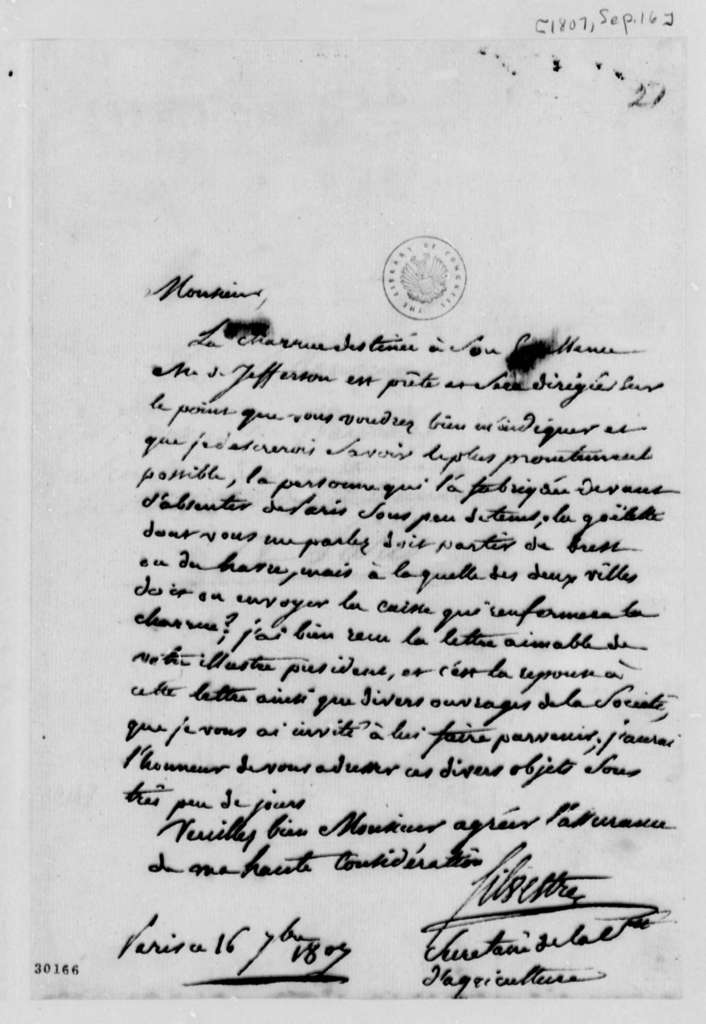 [1807, Sep. 16]
27
THE LIBRARY OF CONGRESS
Monsieur,
La charrue destinée à Son Excellence
Mr de Jefferson est prête et sera dirigée sur
le point que vous voudrez bien m'indiquer et
que je desirerois savoir le plus promtement
possible, la personne qui l'a fabriquée devant
s'absenter de Paris sous peu de tems, la goëlette
dont vous me parlez doit partir de brest
ou du havre, mais à laquelle des deux villes
doit on envoyer la caisse qui renfermera la
charrue? j'ai bien recu la lettre aimable de
votre illustre president, et c'est la reponse à
cette lettre ainsi que divers ouvrages de la Societé,
que je vous ai invité à lui faire parvenir, j'aurai
l'honneur de vous adresser ces divers objets sous
très peu de jours
Veuillez bien Monsieur agréer l'assurance
de ma haute Considération
Silvestre
Paris ce 16 7bre 1807
Secretaire de la Sté
d'agriculture
30166